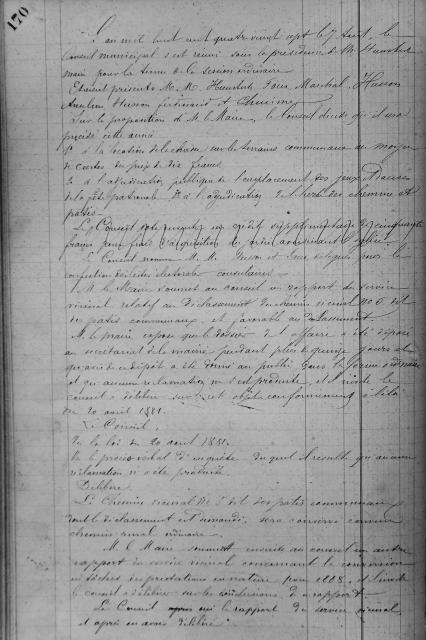 170
L'an mil huit cent quatre vingt sept le 7 Aout, le
Conseil municipal s'est réuni sous la présidence de M. Humbert
maire pour la tenue de la session ordinaire
Etaient présents M. M. Humbert, Marchal, Husson
Husson Ferdinand et
Sur la proposition de M. le Maire, le Conseil décide qu'il sera
procédé cette année
1° à la location de la chasse sur les terrains communaux au moyen
de cartes du prix de dix francs
2° à l'adjudication publique de l'emplacement des jeux & danses
de la fête patronale 3° à l'adjudication de l'herbe des chemins et
patis
Le Conseil vote un crédit supplémentaire de cinquante
francs pour frais d'acquisition de
Le Conseil nomme M. M. Husson et délégués pour la
confection des listes électorales consulaires
M. le Maire soumet au conseil un rapport du service
vicinal relatif au déclassement du chemin vicinal N° 5 dit
des patis communaux et favorable au déclassement
M. le maire expose que le dossier de l'affaire a été déposé
au secrétariat de la mairie pendant plus de quinze jours et
qu'avis de ce dépôt a été donné au public dans la forme ordinaire
et qu'aucune réclamation ne s'est produite, et il invite le
conseil à délibérer sur cet objet conformément à la loi
du 20 août 1881.
Le Conseil,
Vu la loi du 20 août 1881.
Vu le procès verbal d'enquête duquel il résulte qu'aucune
réclamation n'a été produite
Délibère
Le Chemin vicinal N° 5 dit des patis communaux
dont le déclassement est demandé, sera conservé comme
chemin rural ordinaire.
M. le Maire soumet ensuite au conseil un autre
rapport du service vicinal concernant la conversion
en tâches des prestations en nature pour 1888, et invite
le conseil à délibérer sur les conclusions de ce rapport
Le Conseil après ouï le rapport du service vicinal
et après en avoir délibéré